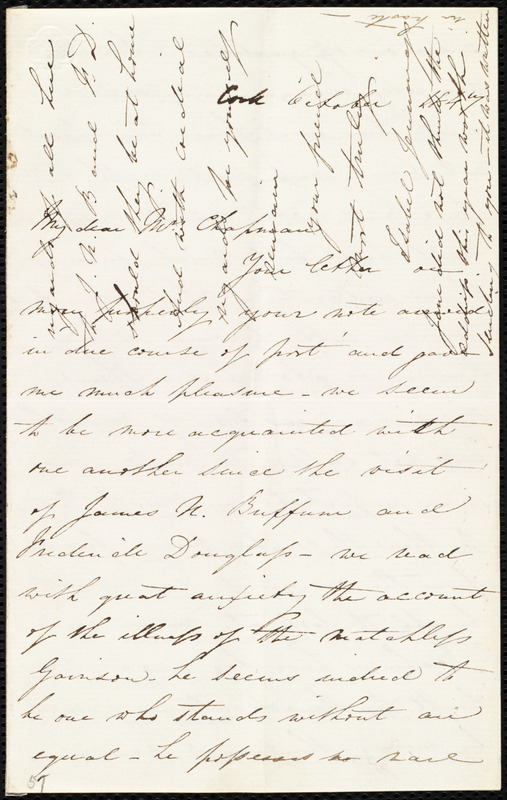 Cork October 1847
My dear Mrs Chapman
Your letter or
more properly your note arrived
in due course of post and gave
me much pleasure - we seem
to be more acquainted with
one another since the visit
of James N. Buffum and
Frederick Douglass - we read
with great anxiety the account
of the illness of the matchless
Garrison - he seems indeed to
be one who stands without an
equal - he possesses so rare
all here
to J. N. B and F. D
should they be at home
And with cordial
regards for yourself
remain
your friend
most truly
Isabel Jennings
Jane did not think the
this year worth
sending to you - it was written
in haste -
57